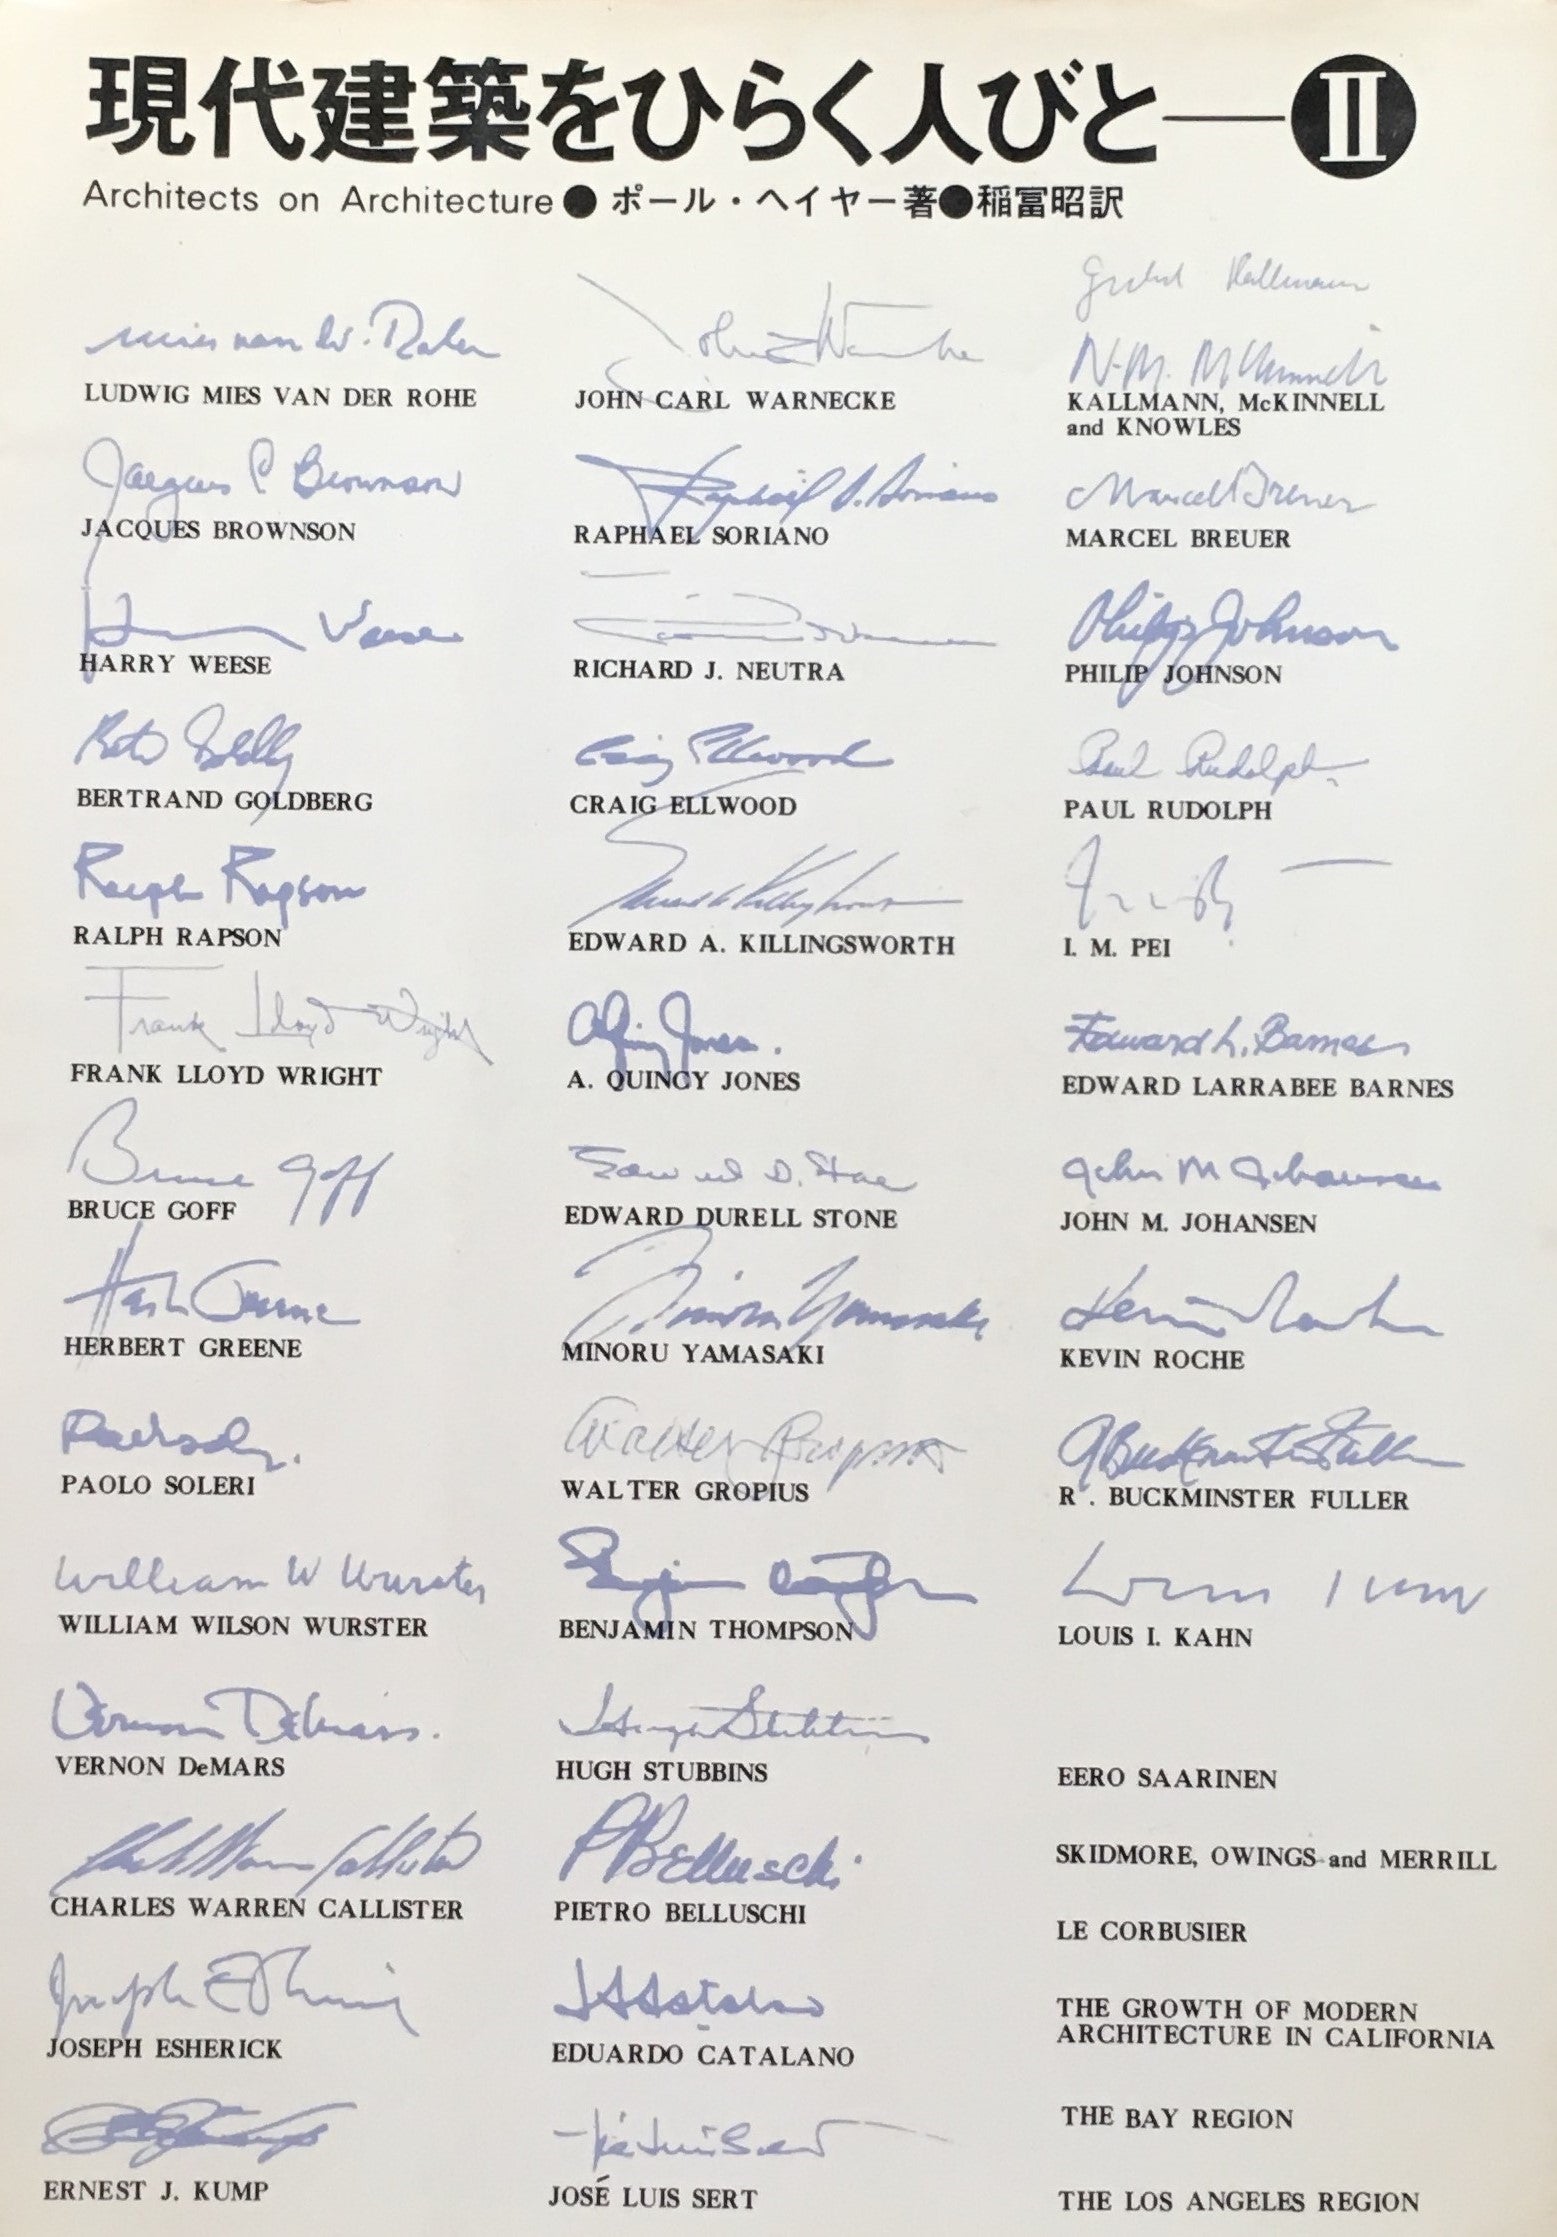 現代建築をひらく人びと—II
Architects on Architecture●ポール・ヘイヤー著●稲冨昭訳
LUDWIG MIES VAN DER ROHE
Jacques C Brownson
JACQUES BROWNSON
Harry Weese
HARRY WEESE
BERTRAND GOLDBERG
Ralph Rapson
RALPH RAPSON
Frank Lloyd Wright
FRANK LLOYD WRIGHT
Bruce Goff
BRUCE GOFF
Herb Greene
HERBERT GREENE
PAOLO SOLERI
William W Wurster
WILLIAM WILSON WURSTER
Vernon DeMars.
VERNON DeMARS
CHARLES WARREN CALLISTER
JOSEPH ESHERICK
ERNEST J. KUMP
JOHN CARL WARNECKE
Raphael S. Soriano
RAPHAEL SORIANO
RICHARD J. NEUTRA
Craig Ellwood
CRAIG ELLWOOD
EDWARD A. KILLINGSWORTH
A. QUINCY JONES
Edward D. Stone
EDWARD DURELL STONE
Minoru Yamasaki
MINORU YAMASAKI
Walter Gropius
WALTER GROPIUS
BENJAMIN THOMPSON
Hugh Stubbins
HUGH STUBBINS
P Belluschi.
PIETRO BELLUSCHI
EDUARDO CATALANO
JOSÉ LUIS SERT
Kallmann
N.M. McKinnell
KALLMANN, McKINNELL
and KNOWLES
Marcel Breuer
MARCEL BREUER
Philip Johnson
PHILIP JOHNSON
Paul Rudolph
PAUL RUDOLPH
I. M. PEI
Edward L. Barnes
EDWARD LARRABEE BARNES
John M Johansen
JOHN M. JOHANSEN
Kevin Roche
KEVIN ROCHE
R. BUCKMINSTER FULLER
LOUIS I. KAHN
EERO SAARINEN
SKIDMORE, OWINGS and MERRILL
LE CORBUSIER
THE GROWTH OF MODERN
ARCHITECTURE IN CALIFORNIA
THE BAY REGION
THE LOS ANGELES REGION